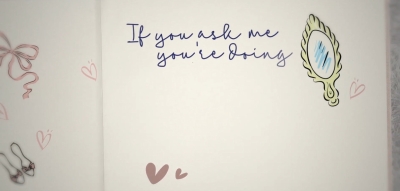 If you ask me
you're doing